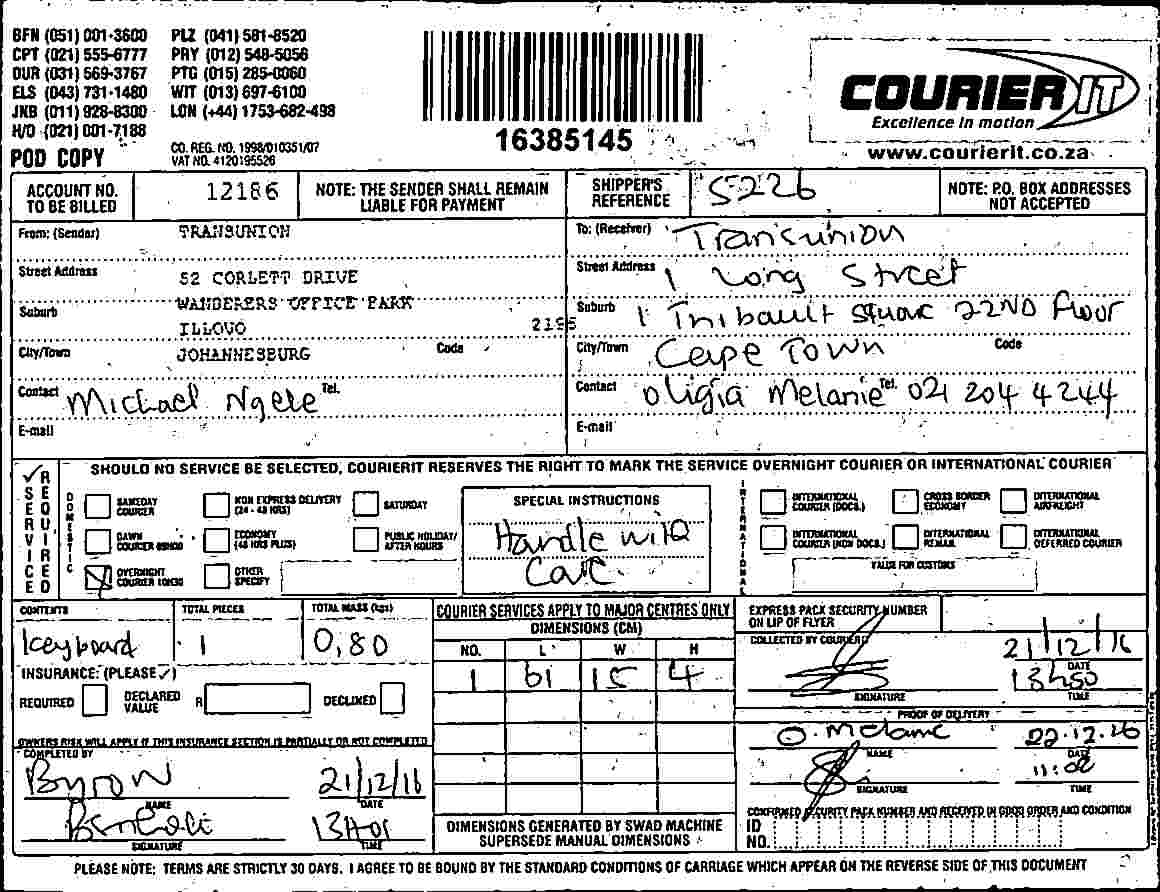 BFN (051) 001-3600 PLZ (041) 581-8520
CPT (021) 555-6777 PRY (012) 548-5056
DUR (031) 569-3767 PTG (015) 285-0060
ELS (043) 731-1480 WIT (013) 697-6100
JNB (011) 928-8300 LON (+44) 1753-682-498
H/O (021) 001-7188
POD COPY
CO. REG. NO. 1998/010351/07
VAT NO. 4120195526
16385145
COURIER IT
Excellence in motion
www.courierit.co.za
ACCOUNT NO. TO BE BILLED 12186
NOTE: THE SENDER SHALL REMAIN LIABLE FOR PAYMENT
SHIPPER'S REFERENCE 5226
NOTE: P.O. BOX ADDRESSES NOT ACCEPTED
From: (Sender) TRANSUNION
Street Address 52 CORLETT DRIVE
Suburb WANDERERS OFFICE PARK
ILLOVO 2196
City/Town JOHANNESBURG Code
Contact Michael Ngele Tel.
E-mail
To: (Receiver) Transunion
Street Address 1 Long Street
Suburb 1 Thibault Square 22ND Floor
City/Town Cape Town Code
Contact Oligia Melanie Tel. 021 204 4244
E-mail
SERVICE REQUIRED
SHOULD NO SERVICE BE SELECTED, COURIERIT RESERVES THE RIGHT TO MARK THE SERVICE OVERNIGHT COURIER OR INTERNATIONAL COURIER
DOMESTIC
SAMEDAY COURIER
NON EXPRESS DELIVERY (24 - 48 HRS)
SATURDAY
DAWN COURIER
ECONOMY (48 HRS PLUS)
PUBLIC HOLIDAY/ AFTER HOURS
OVERNIGHT COURIER 10H30
OTHER SPECIFY
SPECIAL INSTRUCTIONS
Handle with
Care
INTERNATIONAL
INTERNATIONAL COURIER (DOCS.)
CROSS BORDER ECONOMY
INTERNATIONAL AIRFREIGHT
INTERNATIONAL COURIER (NON DOCS.)
INTERNATIONAL REMAIL
INTERNATIONAL DEFERRED COURIER
VALUE FOR CUSTOMS
CONTENTS Keyboard
TOTAL PIECES 1
TOTAL MASS (kgs) 0,80
INSURANCE: (PLEASE ✓)
REQUIRED
DECLARED VALUE R
DECLINED
OWNERS RISK WILL APPLY IF THIS INSURANCE SECTION IS PARTIALLY OR NOT COMPLETED
COMPLETED BY
Byron 21/12/16
NAME DATE
13H01
SIGNATURE TIME
COURIER SERVICES APPLY TO MAJOR CENTRES ONLY
DIMENSIONS (CM)
NO. L W H
1 61 15 4
DIMENSIONS GENERATED BY SWAD MACHINE SUPERSEDE MANUAL DIMENSIONS
EXPRESS PACK SECURITY NUMBER ON LIP OF FLYER
COLLECTED BY COURIERIT
21/12/16
DATE
13h50
SIGNATURE TIME
PROOF OF DELIVERY
O. Melanie 22.12.16
NAME DATE
11:02
SIGNATURE TIME
CONFIRMED SECURITY PACK NUMBER AND RECEIVED IN GOOD ORDER AND CONDITION
ID NO.
PLEASE NOTE: TERMS ARE STRICTLY 30 DAYS. I AGREE TO BE BOUND BY THE STANDARD CONDITIONS OF CARRIAGE WHICH APPEAR ON THE REVERSE SIDE OF THIS DOCUMENT